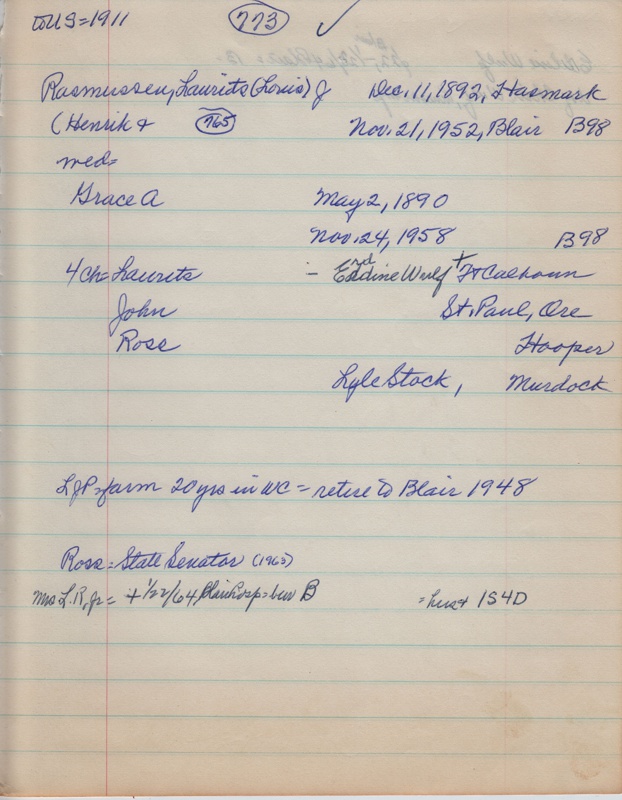 to US=1911 773 ✓
Rasmussen, Laurits (Louis) J Dec. 11, 1892, Hasmark
(Henrik + 765 Nov. 21, 1952, Blair B98
wed=
Grace A May 2, 1890
Nov. 24, 1958 B98
4 ch= Laurits – Erdine Wulf + Ft Calhoun
rd
John St. Paul, Ore
Ross Hooper
Lyle Stock, Murdock
LJP=farm 20 yrs in WC = retire to Blair 1948
Ross = State Senator (1963)
Mrs L.R, Jr = + 1/22/64, Blair Hosp = bur B = hus + 1S 4D